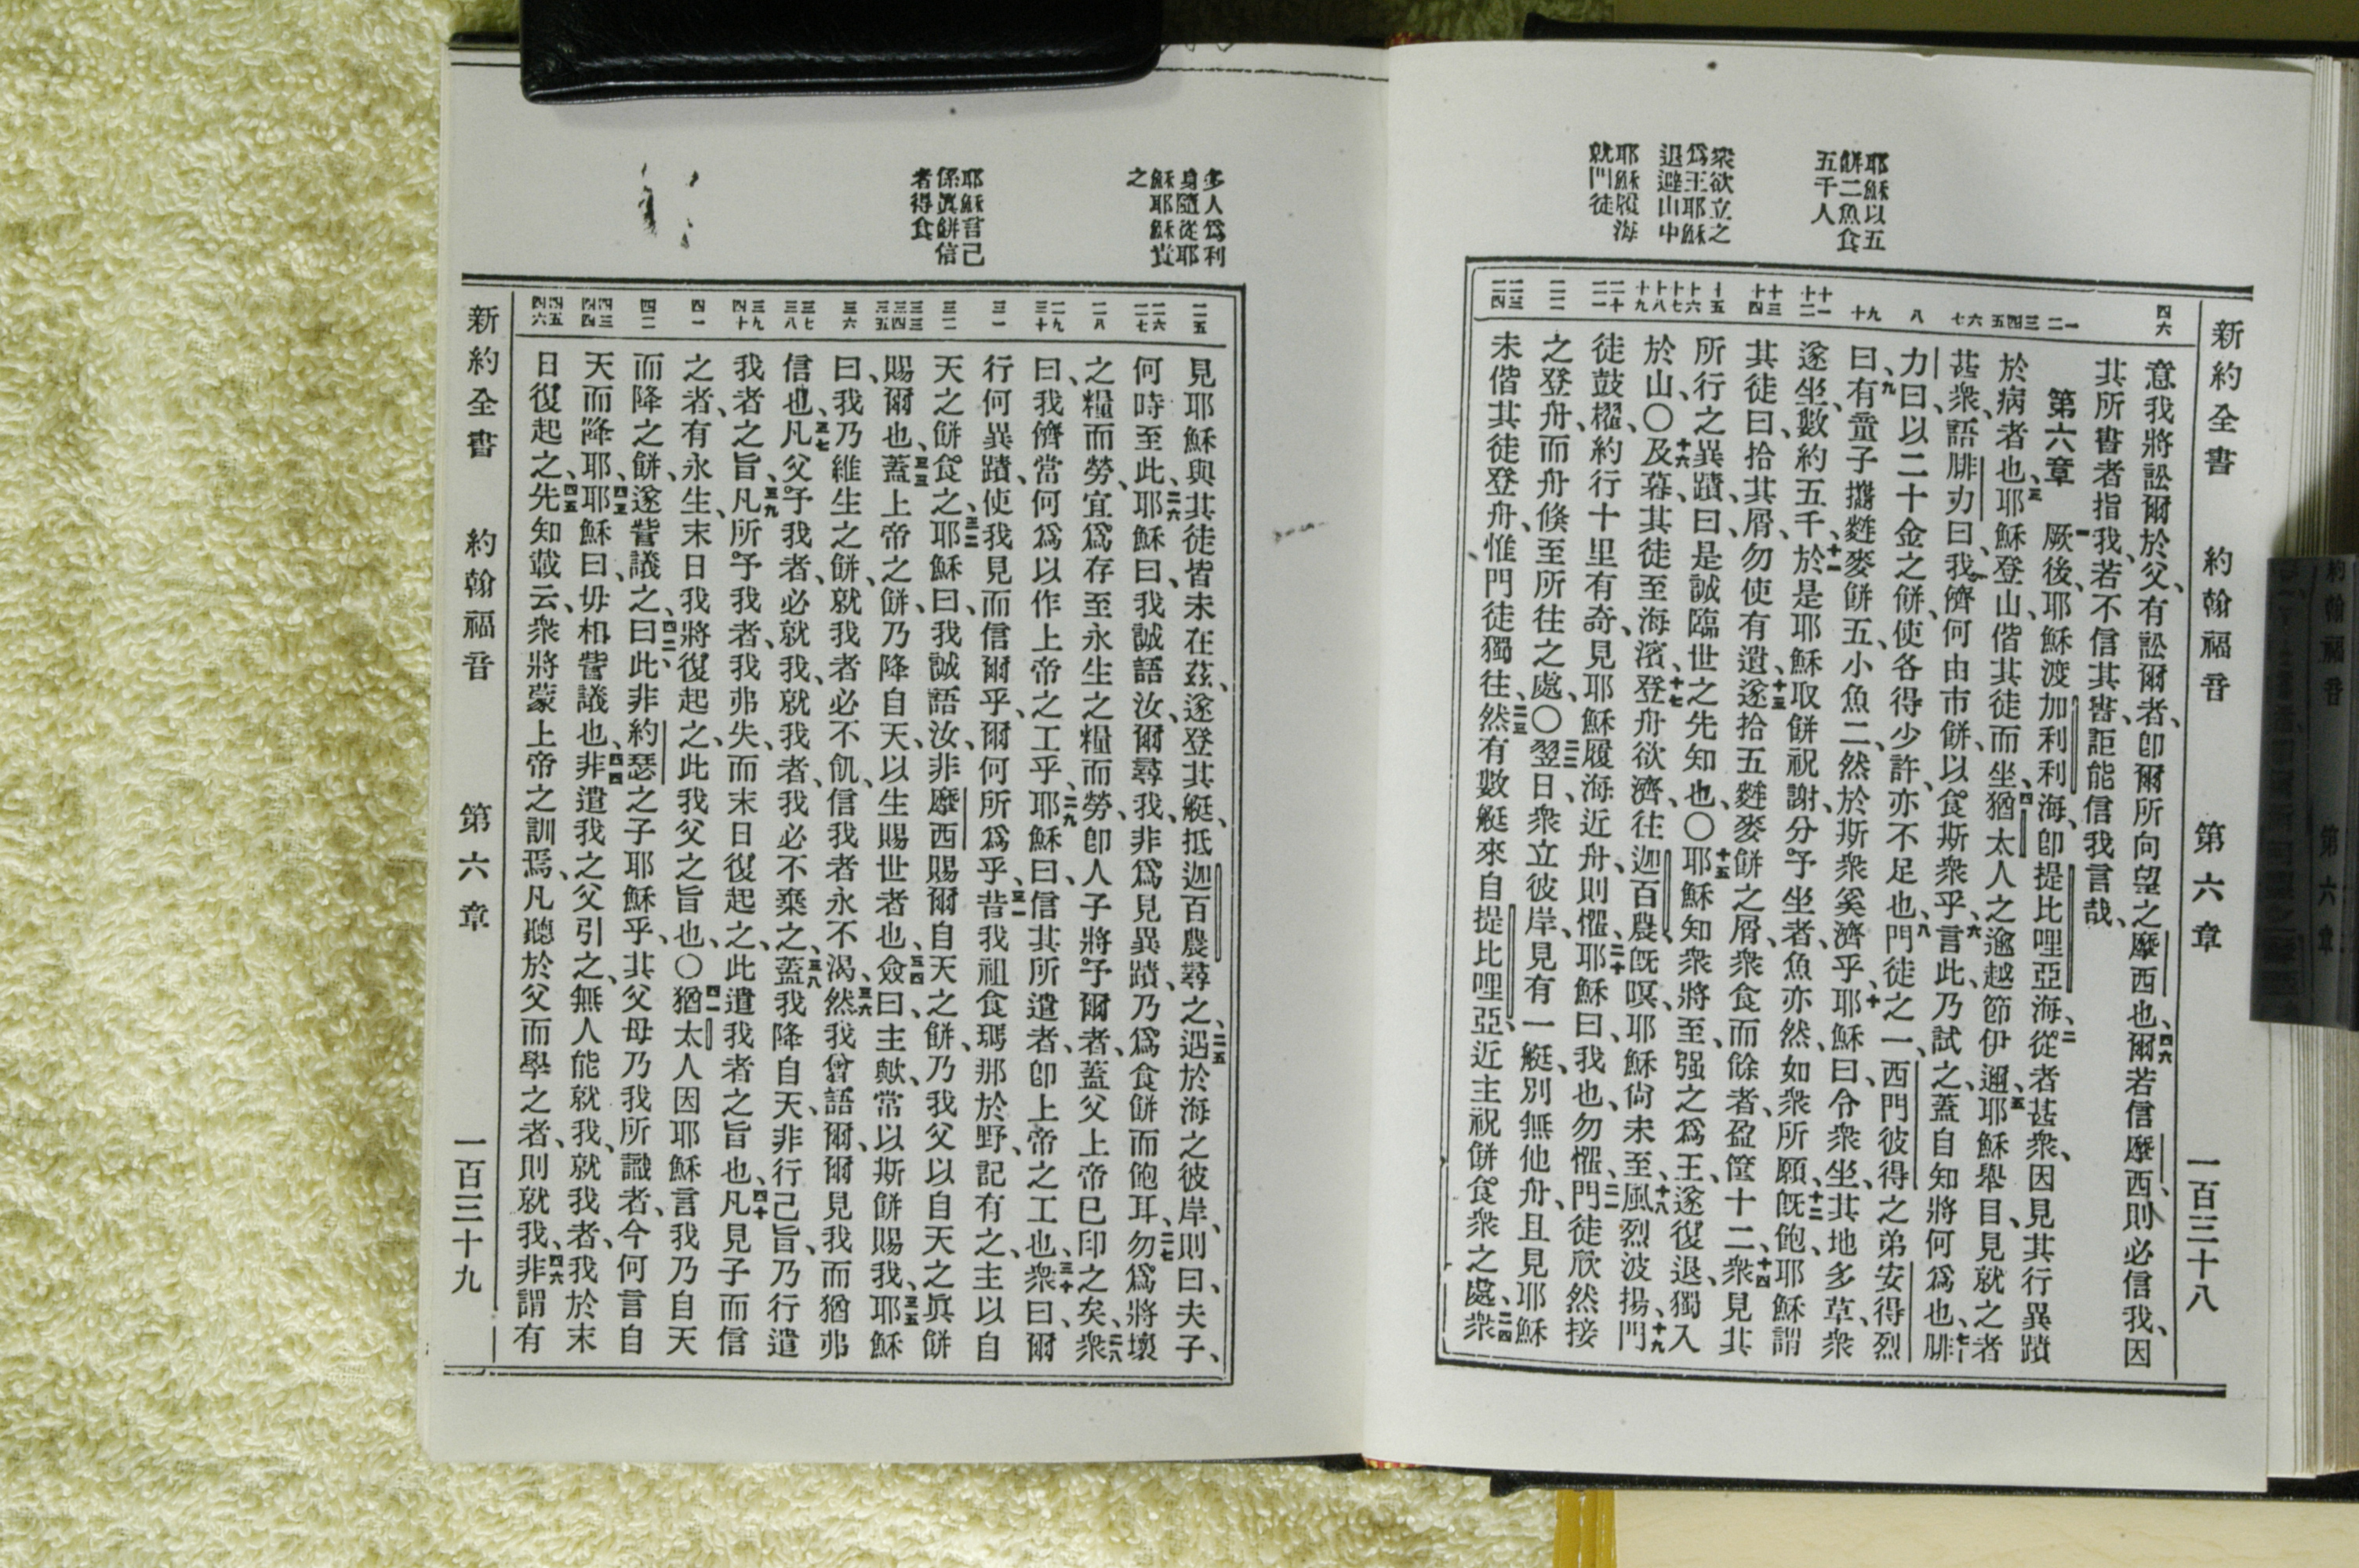 新約全書 約翰福音 第六章 一百三十八
耶穌以五
餅二魚食
五千人
衆欲立之
爲王耶穌
退避山中
耶穌履海
就門徒
四六
意我將訟爾於父、有訟爾者、卽爾所向望之摩西也、四六爾若信摩西、則必信我、因
其所書者指我、若不信其書、詎能信我言哉、
一二
第六章 一厥後、耶穌渡加利利海、卽提比哩亞海、二從者甚衆、因見其行異蹟
三四五
於病者也、三耶穌登山、偕其徒而坐、四猶太人之逾越節伊邇、五耶穌舉目、見就之者
六七
甚衆、語腓力曰、我儕何由市餅、以食斯衆乎、六言此、乃試之、蓋自知將何爲也、七腓
八
力曰、以二十金之餅、使各得少許、亦不足也、八門徒之一、西門彼得之弟安得烈
九十
曰、九有童子攜麰麥餅五、小魚二、然於斯衆奚濟乎、十耶穌曰、令衆坐、其地多草、衆
十一十二
遂坐、數約五千、十一於是耶穌取餅祝謝、分予坐者、魚亦然、如衆所願、十二旣飽、耶穌謂
十三十四
其徒曰、拾其屑、勿使有遺、十三遂拾五麰麥餅之屑、衆食而餘者、盈筐十二、十四衆見其
十五十六十七
所行之異蹟、曰、是誠臨世之先知也、〇十五耶穌知衆將至、强之爲王、遂復退、獨入
十八十九
於山、〇十六及暮、其徒至海濱、十七登舟欲濟、往迦百農、旣暝、耶穌尙未至、十八風烈波揚、十九門
二十二一
徒鼓櫂、約行十里有奇、見耶穌履海近舟、則懼、二十耶穌曰、我也、勿懼、二一門徒欣然接
二二
之登舟、而舟倏至所往之處、〇二二翌日、衆立彼岸、見有一艇、別無他舟、且見耶穌
二三二四
未偕其徒登舟、惟門徒獨往、二三然有數艇來自提比哩亞、近主祝餅食衆之處、二四衆
多人爲利
身隨從耶
穌耶穌責
之
耶穌言己
係眞餅信
者得食
二五
見耶穌與其徒皆未在茲、遂登其艇、抵迦百農尋之、二五遇於海之彼岸、則曰、夫子、
二六二七
何時至此、二六耶穌曰、我誠語汝、爾尋我、非爲見異蹟、乃爲食餅而飽耳、二七勿爲將壞
二八
之糧而勞、宜爲存至永生之糧而勞、卽人子將予爾者、蓋父上帝已印之矣、二八衆
二九三十
曰、我儕當何爲以作上帝之工乎、二九耶穌曰、信其所遣者、卽上帝之工也、三十衆曰、爾
三一
行何異蹟、使我見而信爾乎、爾何所爲乎、三一昔我祖食瑪那於野、記有之、主以自
三二
天之餅食之、三二耶穌曰、我誠語汝、非摩西賜爾自天之餅、乃我父以自天之眞餅
三三三四三五
賜爾也、三三蓋上帝之餅、乃降自天、以生賜世者也、三四僉曰、主歟、常以斯餅賜我、三五耶穌
三六
曰、我乃維生之餅、就我者必不飢、信我者永不渴、三六然我曾語爾、爾見我而猶弗
三七三八
信也、三七凡父予我者、必就我、就我者、我必不棄之、三八蓋我降自天、非行己旨、乃行遣
三九四十
我者之旨、三九凡所予我者、我弗失、而末日復起之、此遣我者之旨也、四十凡見子而信
四一
之者、有永生、末日我將復起之、此我父之旨也、〇四一猶太人因耶穌言我乃自天
四二
而降之餅、遂訾議之、四二曰、此非約瑟之子耶穌乎、其父母乃我所識者、今何言自
四三四四
天而降耶、四三耶穌曰、毋相訾議也、四四非遣我之父引之、無人能就我、就我者、我於末
四五四六
日復起之、四五先知載云、衆將蒙上帝之訓焉、凡聽於父而學之者、則就我、四六非謂有
新約全書 約翰福音 第六章 一百三十九